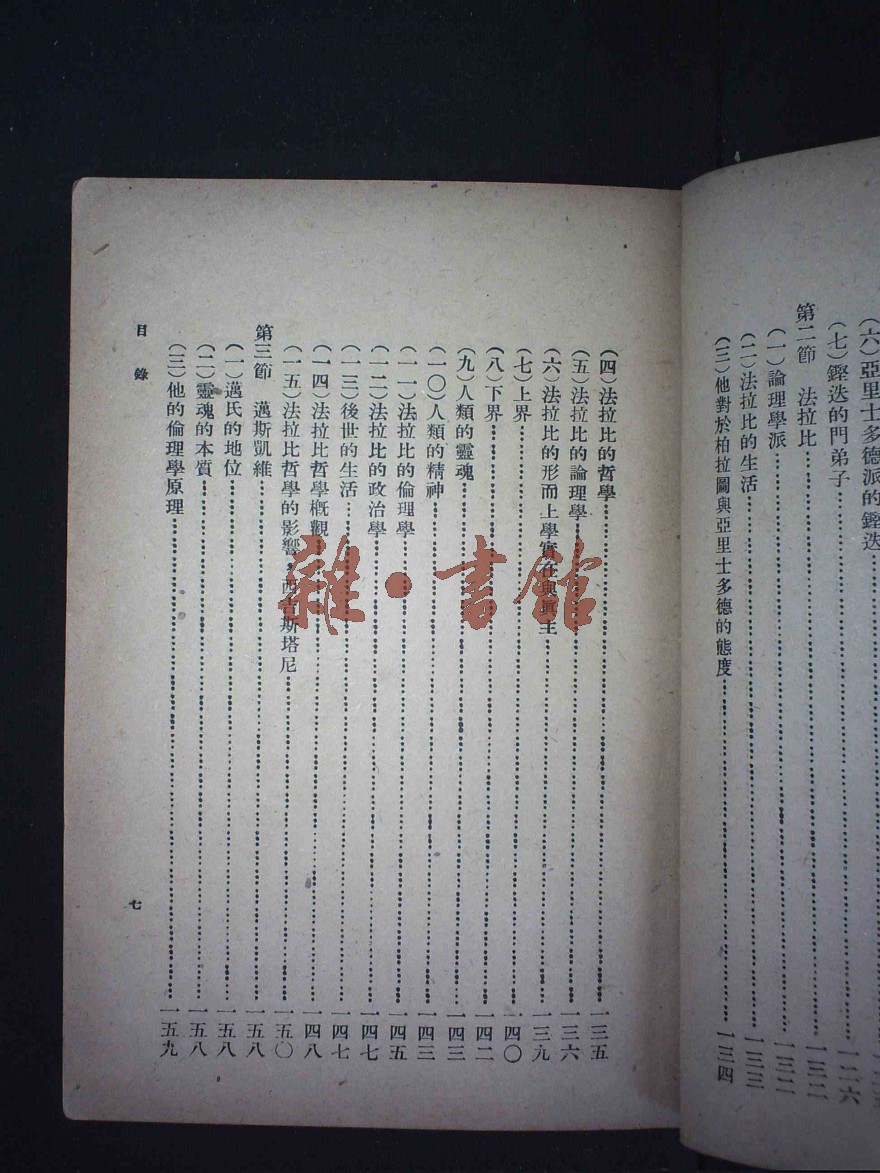 (六)亞里士多德派的鏗迭
(七)鏗迭的門弟子……一二六
第二節 法拉比……一三二
(一)論理學派……一三二
(二)法拉比的生活……一三三
(三)他對於柏拉圖與亞里士多德的態度……一三四
(四)法拉比的哲學……一三五
(五)法拉比的論理學……一三六
(六)法拉比的形而上學實在與眞主……一三九
(七)上界……一四〇
(八)下界……一四二
(九)人類的靈魂……一四三
(一〇)人類的精神……一四三
(一一)法拉比的倫理學……一四五
(一二)法拉比的政治學……一四七
(一三)後世的生活……一四七
(一四)法拉比哲學概觀……一四八
(一五)法拉比哲學的影響,西吉斯塔尼……一五〇
第三節 邁斯凱維……一五八
(一)邁氏的地位……一五八
(二)靈魂的本質……一五八
(三)他的倫理學原理……一五九
目錄
七
雜·書館